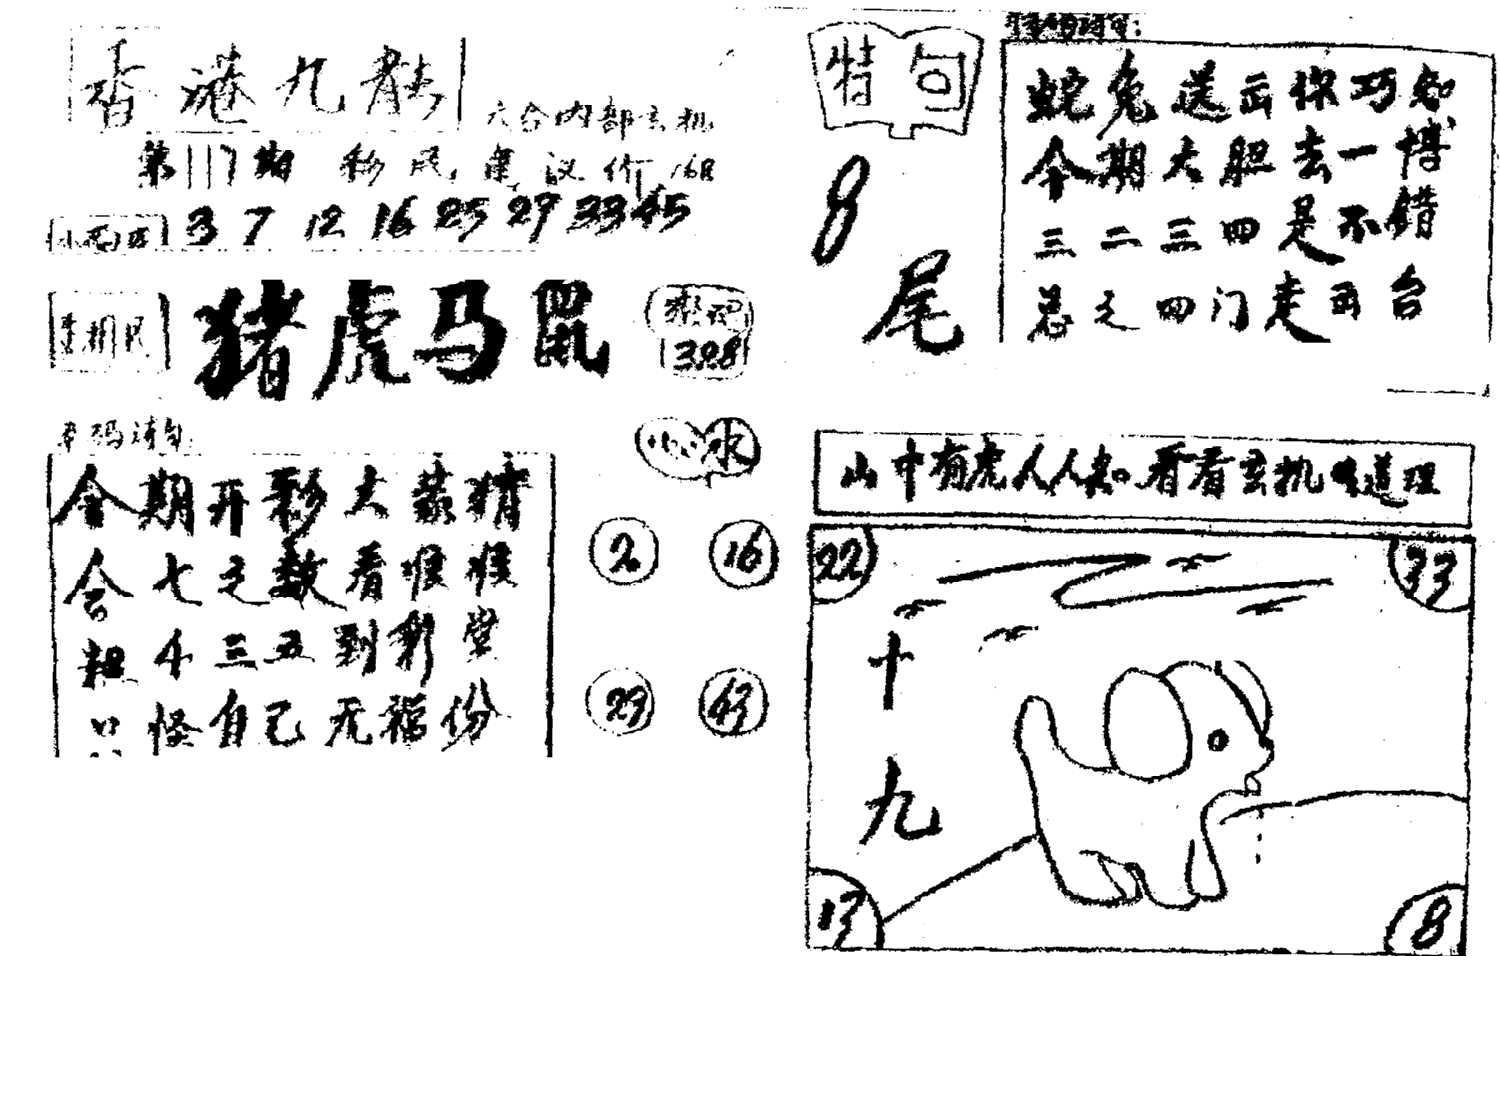 香港九龙
六合内部玄机
第117期 彩民,建议价168
3 7 12 16 25 29 33 45
猪虎马鼠
328
今期开彩大家猜
合七之数看准准
三五到彩堂
怪自己无福份
水
2 16
29 43
特句
8
尾
特码诗句:
蛇兔送出你巧知
今期大胆去一博
三二三四是不错
总之四门走出台
山中有虎人人知 看看玄机啥道理
22 33
十
九
17 8